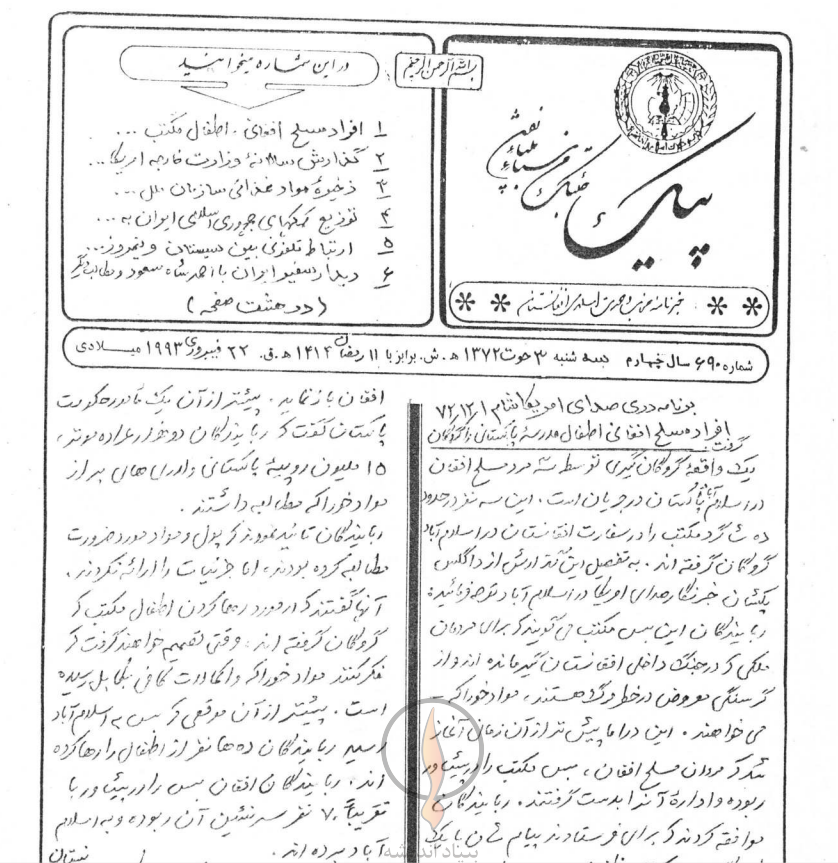 بسم الله الرحمن الرحیم
در این شماره میخوانید
۱ افراد مسلح افغانی، اطفال مکتب ...
۲ گذارش سالانهٔ وزارت خارجه امریکا ...
۳ ذخیرهٔ مواد غذائی سازمان ملل ...
۴ توزیع کمکهای جمهوری اسلامی ایران به ...
۵ ارتباط تلفونی بین سیستان و نیمروز ...
۶ دیدار سفیر ایران با احمد شاه مسعود و مطالب دیگر
( در هشت صفحه )
پیک
خبرنامه
شماره ۶۹۰ سال چهارم سه شنبه ۳ حوت ۱۳۷۲ ه.ش. برابر با ۱۱ رمضان ۱۴۱۴ ه.ق. ۲۲ فبروری ۱۹۹۳ میلادی
برنامه دری صدای امریکا شام ۷۲/۱۲/۱
افراد مسلح افغانی اطفال مدرسه پاکستانی را گروگان
گرفت
یک واقعهٔ گروگان گیری توسط سه مرد مسلح افغان
در اسلام آباد پاکستان در جریان است. این سه نفر در حدود
ده شاگرد مکتب را در سفارت افغانستان در اسلام آباد
گروگان گرفته اند. به تفصیل این گذارش از داگلس
خبرنگار صدای امریکا در اسلام آباد توجه فرمائید:
ربایندگان این بس مکتب می گویند که برای مردمان
ملکی که در جنگ داخلی افغانستان گیر مانده اند و از
گرسنگی معروض در خطر مرگ هستند، مواد خوراکه
می خواهند. این دراما پیش تر از آن زمانی آغاز
شد که مردان مسلح افغان، بس مکتب را در پیشاور
ربوده و ادارهٔ آنرا بدست گرفتند. ربایندگان
موافقه کردند که برای فرستادند پیام شان با یک
افغان باز نماید. پیشتر از آن یک مامور حکومت
پاکستان گفت که ربایندگان دو هزار عراده موتر،
۱۵ ملیون روپیهٔ پاکستانی و لاری های پر از
مواد خوراکه مطالبه داشتند.
ربایندگان تائید نمودند که پول و مواد مورد ضرورت
مطالبه کرده بودند، اما جزئیات را ارائه نکردند.
آنها گفتند که در مورد رها کردن اطفال مکتب که
گروگان گرفته اند، وقتی تصمیم خواهند گرفت که
فکر کنند مواد خوراکه و اکمالات کافی بکابل رسیده
است. پیشتر از آن موقعی که بس به اسلام آباد
رسید ربایندگان ده ها نفر از اطفال را رها کرده
اند. ربایندگان افغان بس را در پیشاور با
تقریباً ۷۰ نفر سرنشین آن ربوده و به اسلام
آباد برده اند.
بنیاد اندیشه